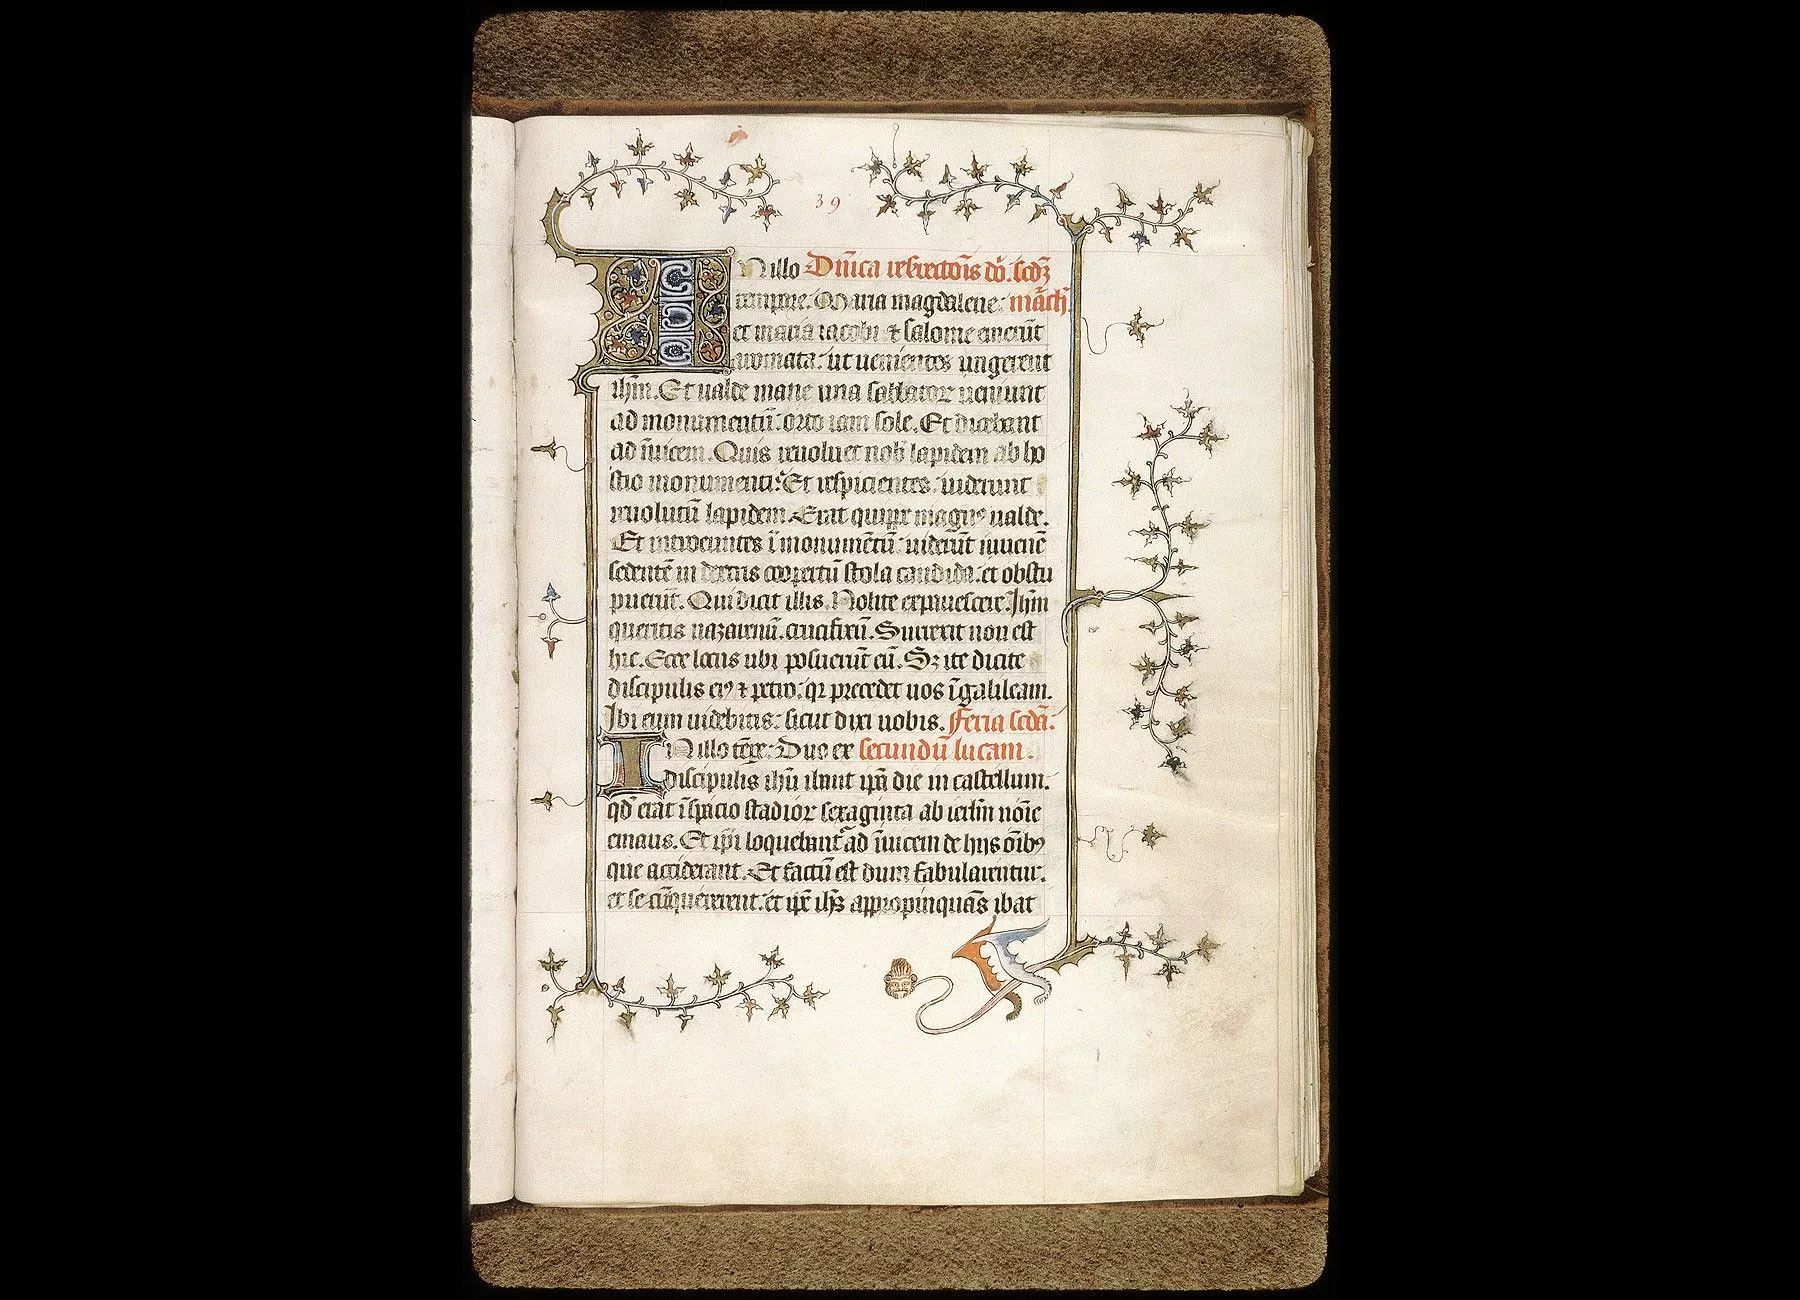 39
IN illo Dñica resrectõis dõ. scdȝ
tempore. Maria magdalene: mãch̃.
et maria iacobi ⁊ salome emerũt
aromata: ut uenientes ungerent
ihm̃. Et ualde mane una sabbatoꝝ ueniunt
ad monumentũ: orto iam sole. Et dicebant
ad ĩuicem. Quis reuoluet nob̃ lapidem ab ho
stio monumenti: Et respicientes: uiderunt
reuolutũ lapidem. Erat quippe magnꝰ ualde.
Et introeuntes ĩ monumẽtũ: uiderũt iuuenẽ
sedentẽ in dextris coopertũ stola candida: et obstu
puerũt. Qui dicit illis. Nolite expauescere. Ihm̃
queritis nazarenũ. crucifixũ. Surrexit non est
hic. Ecce locus ubi posuerũt eũ. Sꝫ ite dicite
discipulis eiꝰ ⁊ petro: qꝛ precedet uos ĩ galileam.
Ibi eum uidebitis: sicut dixi uobis. Feria scdã.
IN illo tẽpꝛe: Duo ex secundũ lucam.
discipulis ihũ ibant ip̃a die in castellum.
qd̃ erat ĩ spacio stadioꝝ sexaginta ab ierl̃m nõie
emaus. Et ip̃i loquebant᷑ ad ĩuicem de hijs õibꝰ
que acciderant. Et factũ est dum fabularentur.
et se cũ quererent: et ip̃e ih̃s appropinquãs ibat